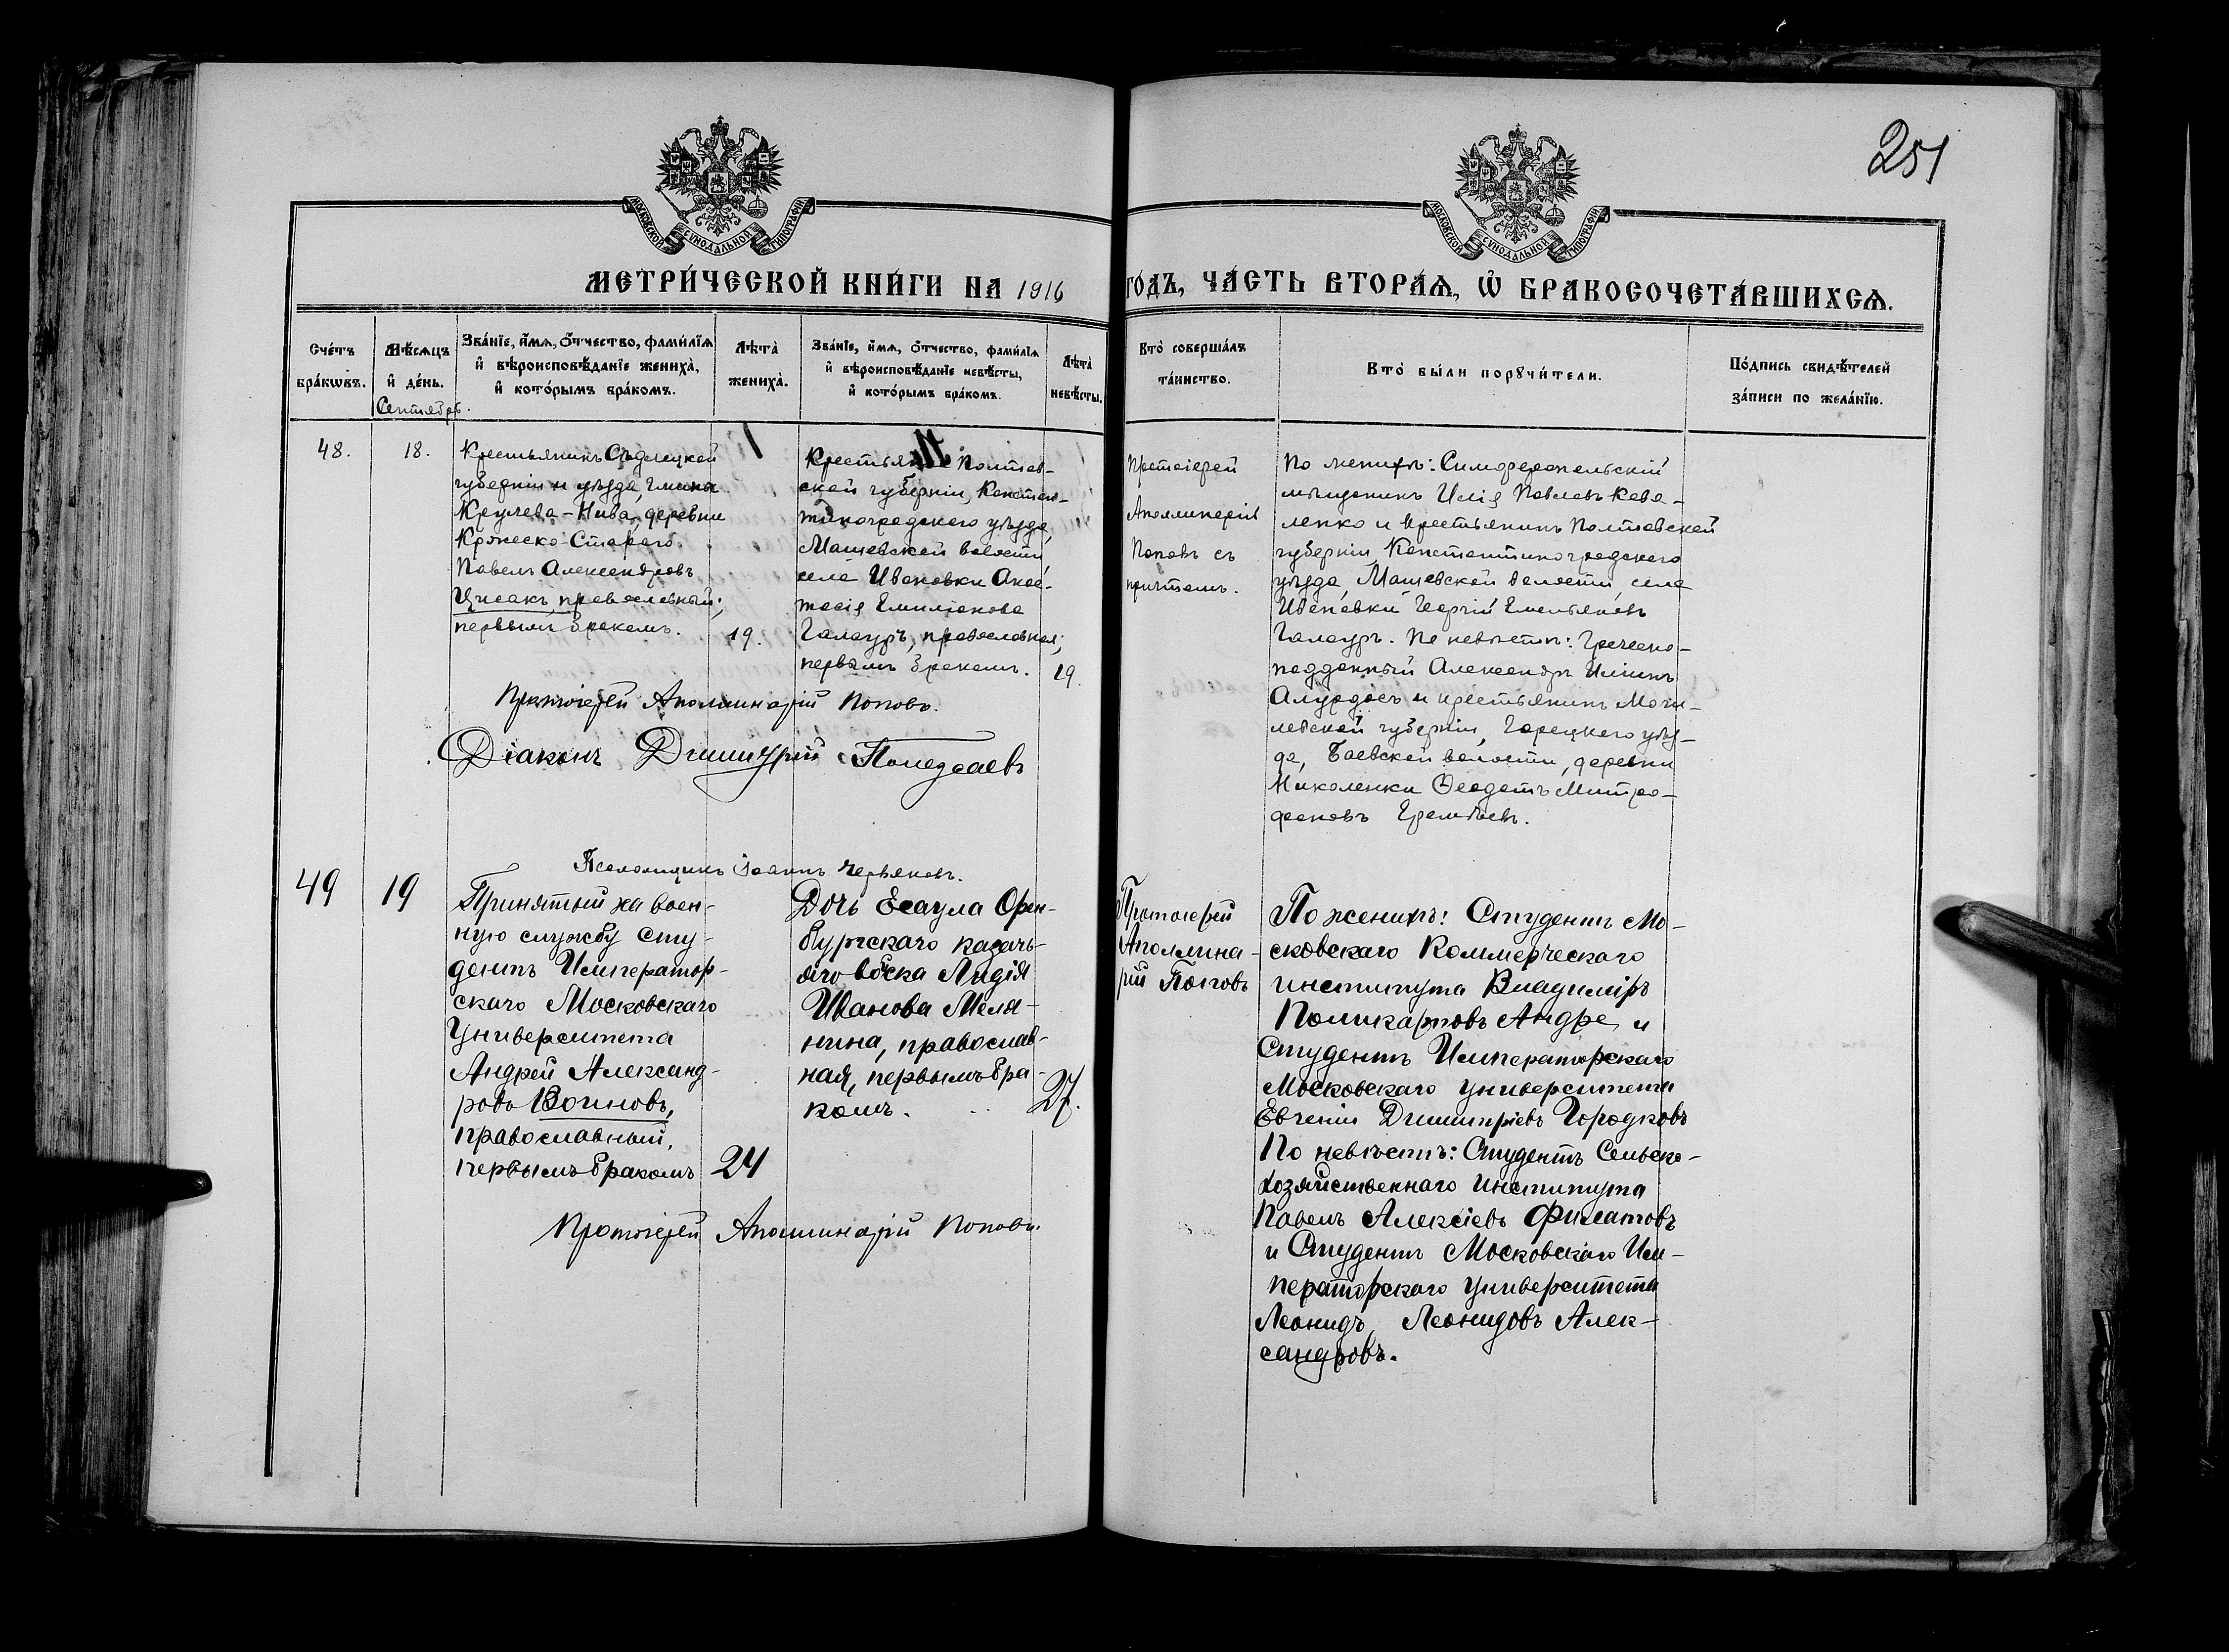 251
МОСКОВСКОЙ СУНОДАЛЬНОЙ ТИПОГРАФІИ
МОСКОВСКОЙ СУНОДАЛЬНОЙ ТИПОГРАФІИ
МЕТРИ́ЧЕСКОЙ КНИ́ГИ НА 1916 ГО́ДЪ, ЧА́СТЬ ВТОРА́Ѧ, Ѡ҆ БРАКОСОЧЕТА́ВШИХСѦ.
Сче́тъ
бра́кѡвъ.
Мѣ́сѧцъ
и҆ де́нь.
Сентябрь.
Зва́нїе, и҆́мѧ, ѻ҆́тчество, фами́лїѧ
и҆ вѣроисповѣ́данїе жениха̀,
и҆ кото́рымъ бра́комъ.
Лѣта̀
жениха̀.
Зва́нїе, и҆́мѧ, ѻ҆́тчество, фами́лїѧ
и҆ вѣроисповѣ́данїе невѣ́сты,
и҆ кото́рымъ бра́комъ.
Лѣта̀
невѣ́сты.
Кто̀ соверша́лъ
та́инство.
Кто̀ бы́ли порꙋчи́тели.
По́дпись свидѣ́телей
за́писи по жела́нїю.
48.
18.
Крестьянинъ Сѣдлецкой
губерніи и уѣзда, гмина
Крулева-Нива, деревни
Старого.
Павелъ Александровъ
Цисакъ, православный;
первымъ бракомъ.
19.
Крестьянка Полтав-
ской губерніи, Констан-
тиноградского уѣзда,
Машевской волости
села Ивановки Анас-
тасія Емиліанова
Галагуръ, православная;
первымъ бракомъ.
19.
Протоіерей Аполлинарій Поповъ.
Діаконъ Димитрій
Псаломщикъ Іоаннъ Червяковъ.
Протоіерей
Аполлинарій
Поповъ съ
причтомъ.
По женихѣ: Симферопольскій
мѣщанинъ Илія Павловъ Кова-
ленко и крестьянинъ Полтавской
губерніи, Константиноградского
уѣзда, Машевской волости села
Ивановки Георгій Емельяновъ
Галагуръ. По невѣстѣ: Греческо-
подданный Александръ Ильинъ
и крестьянинъ Моги-
левской губерніи, Горецкого уѣз-
да, Баевской волости, деревни
Николенки Ѳеодотъ Митро-
фановъ
49
19
Принятый на воен-
ную службу сту-
дентъ Император-
скаго Московскаго
Университета
Андрей Александ-
ровъ Воиновъ,
православный,
первымъ бракомъ
24
Дочь Есаула Орен-
бургскаго казачь-
яго войска Лидія
Иванова Меля-
нина, православ-
ная, первымъ бра-
комъ.
27.
Протоіерей Аполлинарій Поповъ.
Протоіерей
Аполлина-
рій Поповъ
По женихѣ: Студентъ Мо-
сковскаго Коммерческаго
института Владиміръ
Поликарповъ Андре и
Студентъ Императорскаго
Московскаго университета
Евгеній Димитріевъ Городковъ
По невѣстѣ: Студентъ Сельско-
хозяйственнаго института
Павелъ Алексіевъ Филатовъ
и Студентъ Московскаго Им-
ператорскаго университета
Леонидъ Леонидовъ Алек-
сандровъ.